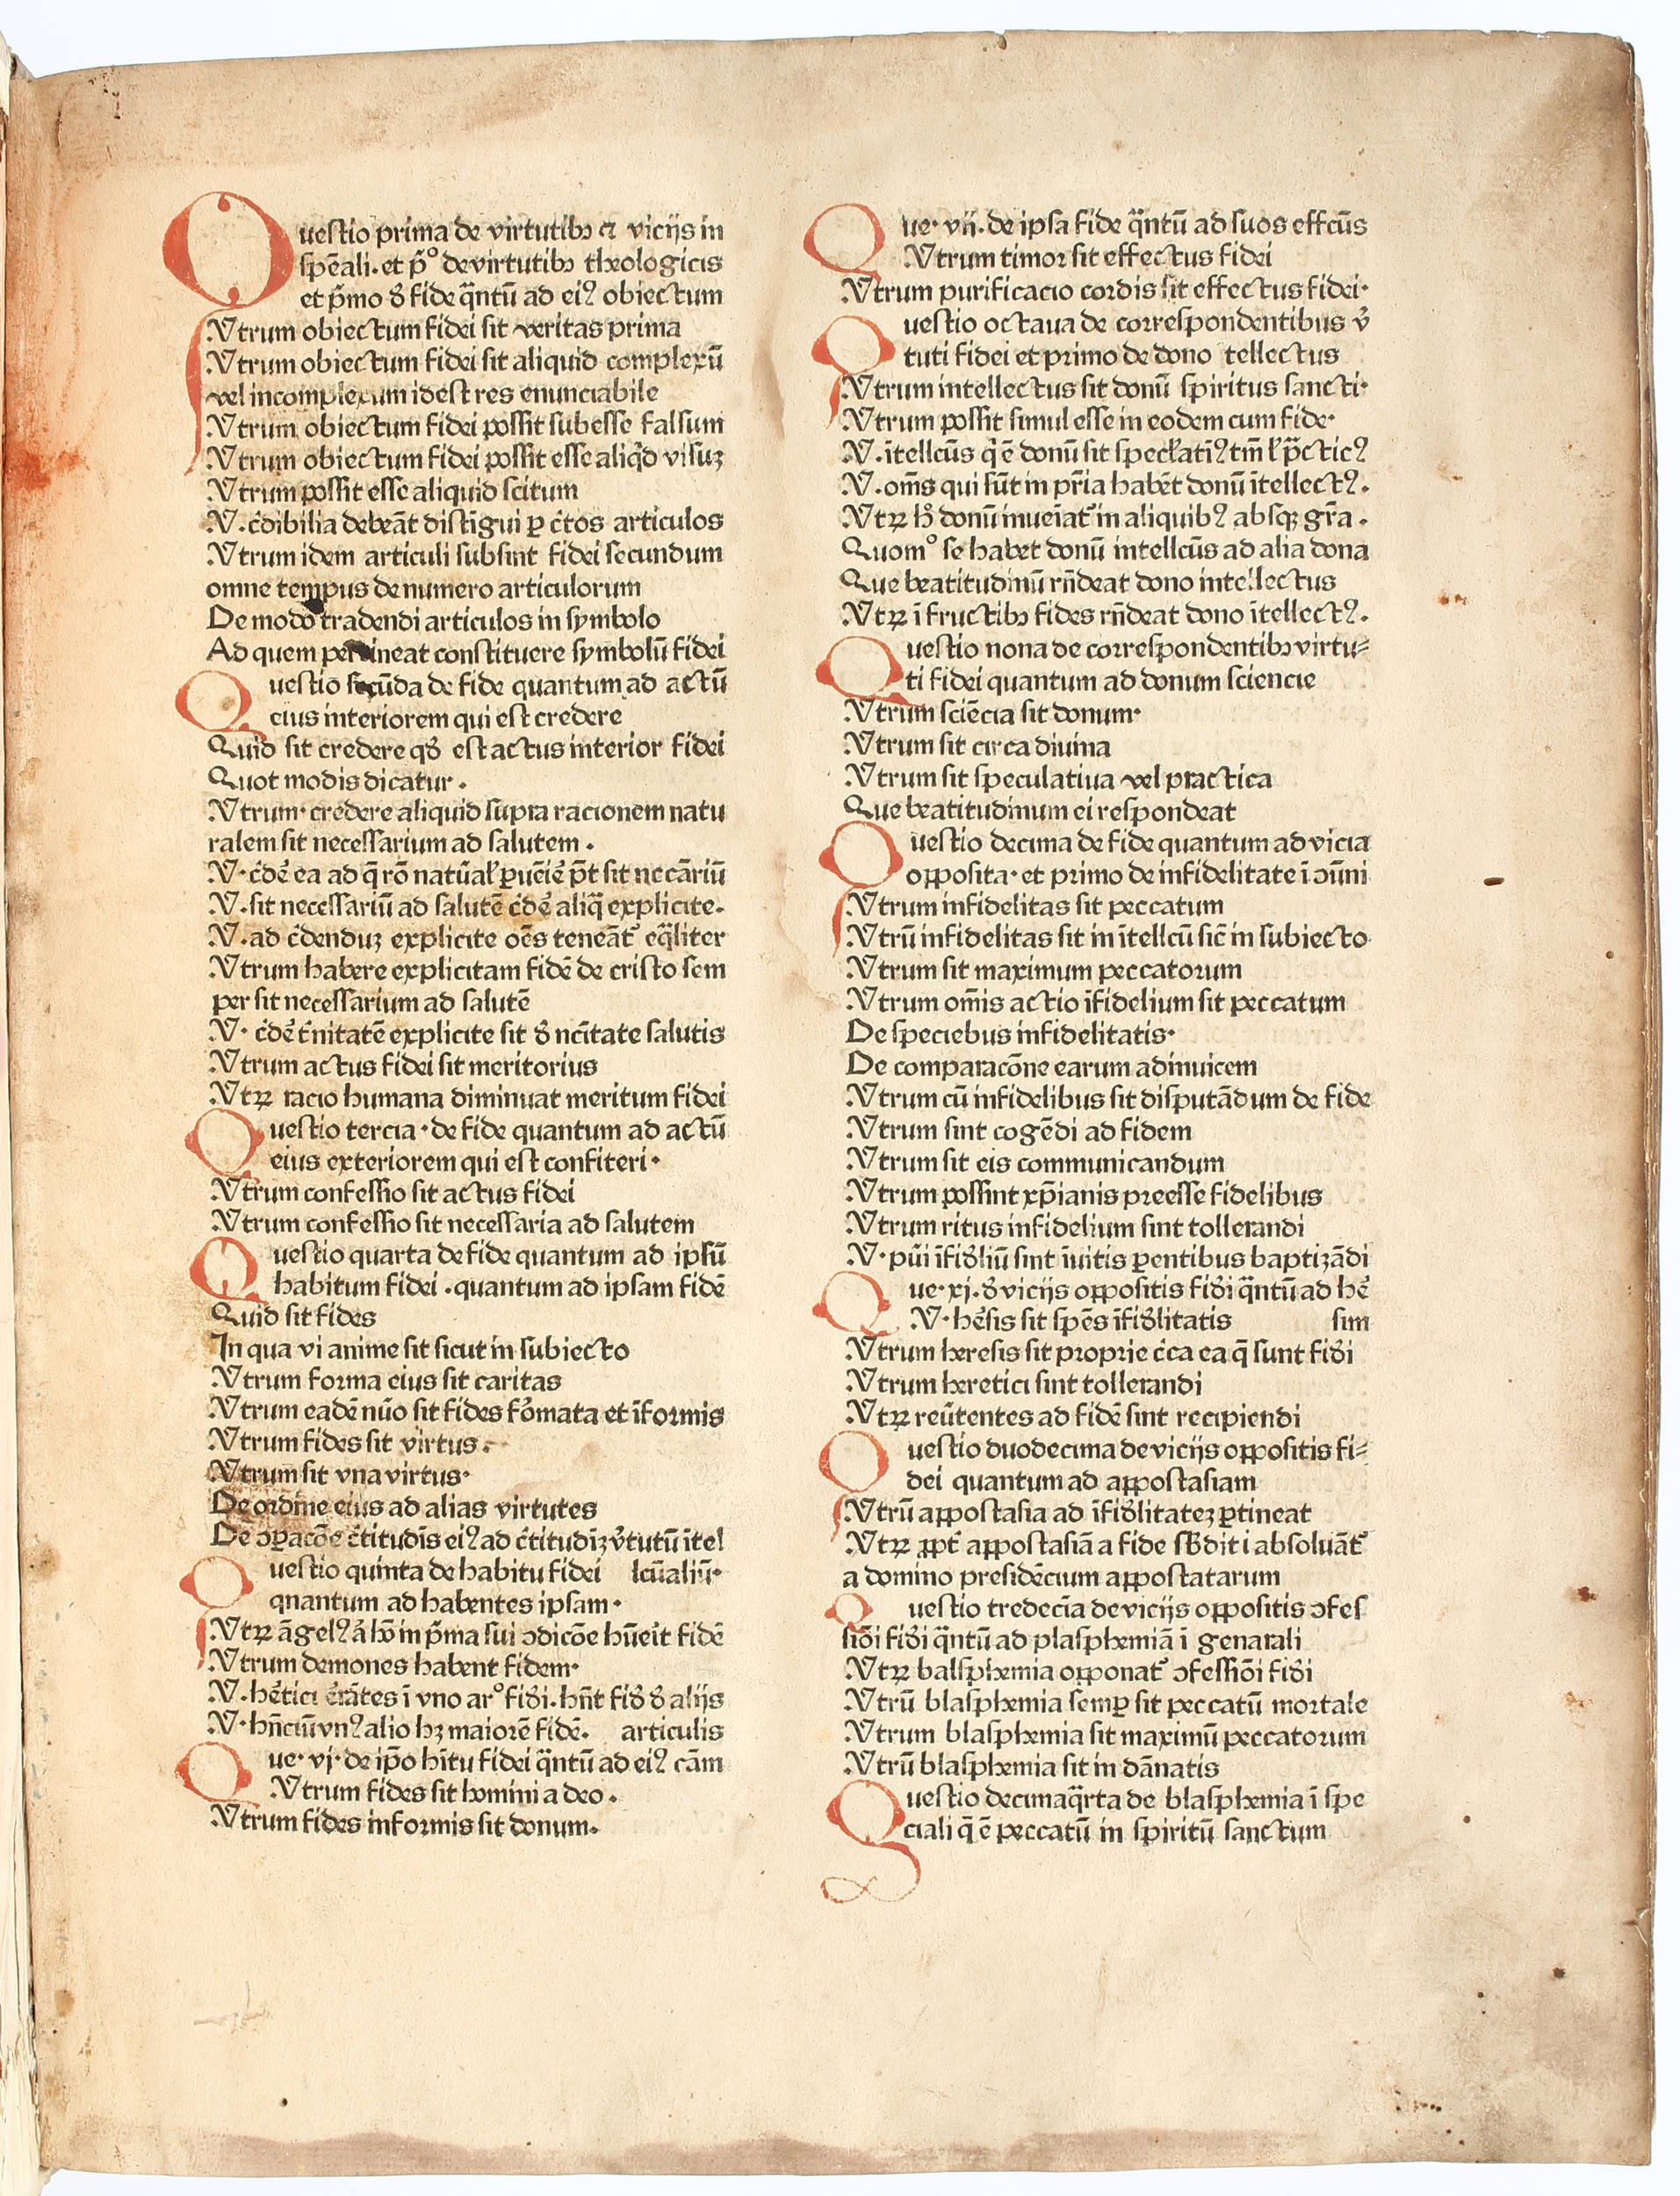 Questio prima de virtutibꝫ ⁊ vicijs in
spēali. et p̄º de virtutibꝫ theologicis
et p̄mo ð fide q̄ntū ad eiꝰ obiectum
Vtrum obiectum fidei sit veritas prima
Vtrum obiectum fidei sit aliquid complexū
vel incomplexum id est res enunciabile
Vtrum obiectum fidei possit subesse falsum
Vtrum obiectum fidei possit esse aliq̇d visuꝫ
Vtrum possit esse aliquid scitum
V. c̄dibilia debeāt distīgui ꝑ c̄tos articulos
Vtrum idem articuli subsint fidei secundum
omne tempus de numero articulorum
De modo tradendi articulos in symbolo
Ad quem pertineat constituere symbolū fidei
Questio secūda de fide quantum ad actū
eius interiorem qui est credere
Quid sit credere qð est actus interior fidei
Quot modis dicatur.
Vtrum· credere aliquid supra racionem natu
ralem sit necessarium ad salutem.
V· c̄dē ea ad q̄ rō natūaƚ ꝑuēiē p̄t sit necāriū
V. sit necessariū ad salutē c̄dē aliq̄ explicite.
V. ad c̄denduꝫ explicite oēs teneāt᷑ eq̄liter
Vtrum habere explicitam fidē de cristo sem
per sit necessarium ad salutē
V· c̄dē t̄nitatē explicite sit ð nc̄itate salutis
Vtrum actus fidei sit meritorius
Vtꝝ racio humana diminuat meritum fidei
Questio tercia· de fide quantum ad actū
eius exteriorem qui est confiteri·
Vtrum confessio sit actus fidei
Vtrum confessio sit necessaria ad salutem
Questio quarta de fide quantum ad ipsū
habitum fidei. quantum ad ipsam fidē
Quid sit fides
In qua vi anime sit sicut in subiecto
Vtrum forma eius sit caritas
Vtrum eadē nūo sit fides fo᷑mata et īformis
Vtrum fides sit virtus.
Vtrum sit vna virtus·
De ordine eius ad alias virtutes
De ꝯꝑacōe c̄titudīs eiꝰ ad c̄titudīꝫ v̄tutū ītel
Questio quinta de habitu fidei lc̄ualiū·
qnantum ad habentes ipsam·
Vtꝝ āgelꝰ a᷑ hō in p̄ma sui ꝯdicōe hūeit᷑ fidē
Vtrum demones habent fidem·
V. hētici ērātes ī vno arº fiði. hn̄t fið ð alijs
V· hn̄ciū vnꝰ alio hꝫ maiorē fidē. articulis
Que· vj· de ip̄o hītu fidei q̄ntū ad eiꝰ cām
Vtrum fides sit homini a deo.
Vtrum fides informis sit donum.
Que· vij. de ipsa fide q̄ntū ad suos effcūs
Vtrum timor sit effectus fidei
Vtrum purificacio cordis sit effectus fidei·
Questio octaua de correspondentibus v̄
tuti fidei et primo de dono tellectus
Vtrum intellectus sit donū spiritus sancti·
Vtrum possit simul esse in eodem cum fide·
V. ītellcūs q̇ ē donū sit specƚatīꝰ tm̄ ƚ p̄cticꝰ
V. om̄s qui sūt in pr̄ia habēt donū ītellectꝰ.
Vtꝝ hᷣ donū inueīat᷑ in aliquibꝰ absqꝫ gr̄a.
Quomº se habet donū intellcūs ad alia dona
Que beatitudinū rn̄deat dono intellectus
Vtꝝ ī fructibꝫ fides rn̄deat dono ītellectꝰ.
Questio nona de correspondentibꝫ virtu⸗
ti fidei quantum ad donum sciencie
Vtrum sciēcia sit donum·
Vtrum sit circa diuina
Vtrum sit speculatiua vel practica
Que beatitudinum ei respondeat
Questio decima de fide quantum ad vicia
opposita· et primo de infidelitate ī ꝯūni
Vtrum infidelitas sit peccatum
Vtrū infidelitas sit in ītellcū sic̄ in subiecto
Vtrum sit maximum peccatorum
Vtrum om̄is actio īfidelium sit peccatum
De speciebus infidelitatis·
De comparacōne earum adinuicem
Vtrum cū infidelibus sit disputādum de fide
Vtrum sint cogēdi ad fidem
Vtrum sit eis communicandum
Vtrum possint xp̄ianis preesse fidelibus
Vtrum ritus infidelium sint tollerandi
V· pūi īfiðliū sint īuitis ꝑentibus baptizādi
Que· xj. ð vicijs oppositis fiði q̄ntū ad hē
V· hēsis sit spēs īfiðlitatis sim
Vtrum heresis sit proprie c̄ca ea q̄ sunt fiði
Vtrum heretici sint tollerandi
Vtꝝ reūtentes ad fidē sint recipiendi
Questio duodecima de vicijs oppositis fi⸗
dei quantum ad appostasiam
Vtrū appostasia ad īfiðlitateꝫ ꝑtineat
Vtꝝ ꝓpt᷑ appostasiā a fide sƀditi absoluāt᷑
a domino presidēcium appostatarum
Questio tredecīa de vicijs oppositis ꝯfes
siōi fiði q̄ntū ad plasphemiā ī genarali
Vtꝝ balsphemia opponat᷑ ꝯfessiōi fiði
Vtrū blasphemia semꝑ sit peccatū mortale
Vtrum blasphemia sit maximū peccatorum
Vtrū blasphemia sit in dānatis
Questio decimaq̄rta de blasphemia ī spe
ciali q̄ ē peccatū in spiritū sanctum